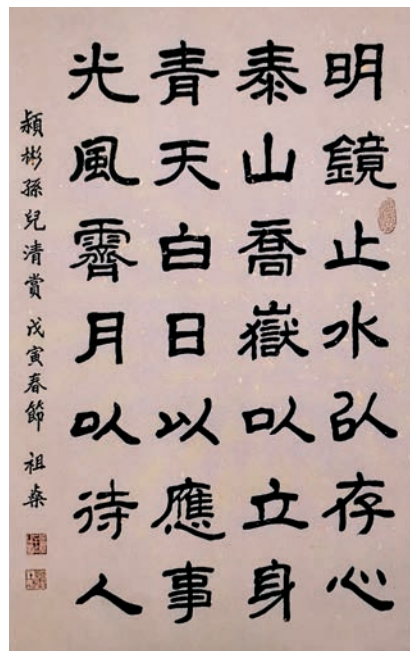 明鏡止水以存心
泰山喬嶽以立身
青天白日以應事
光風霽月以待人
穎彬孫兒清賞 戊寅春節 祖燊